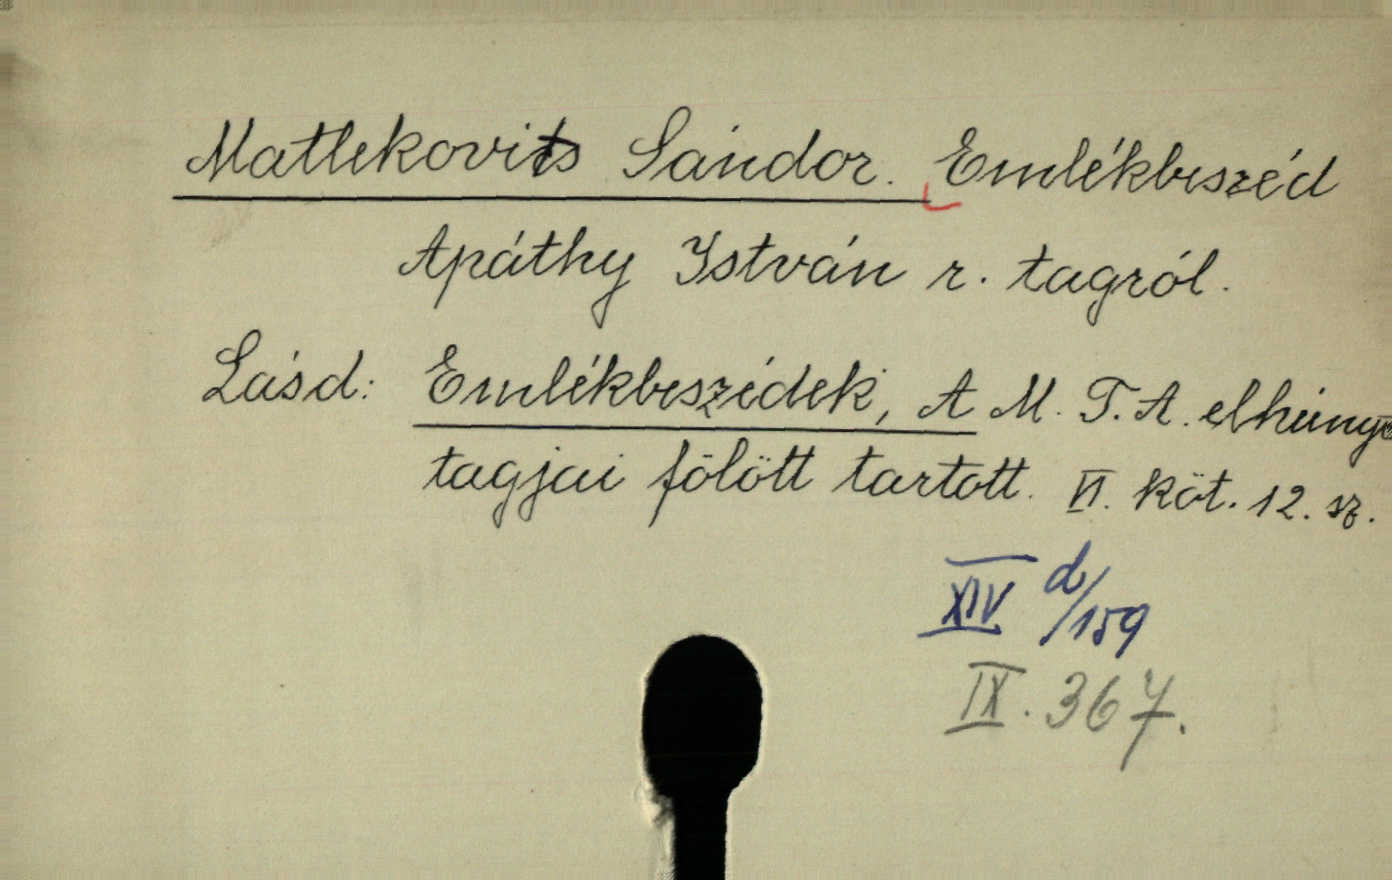 Matlekovits Sándor. Emlékbeszéd
Apáthy István r. tagról.
Lásd: Emlékbeszédek, A M. T. A. elhúnyt
tagjai fölött tartott. VI. köt. 12. sz.
XIV d/159
IX. 367.